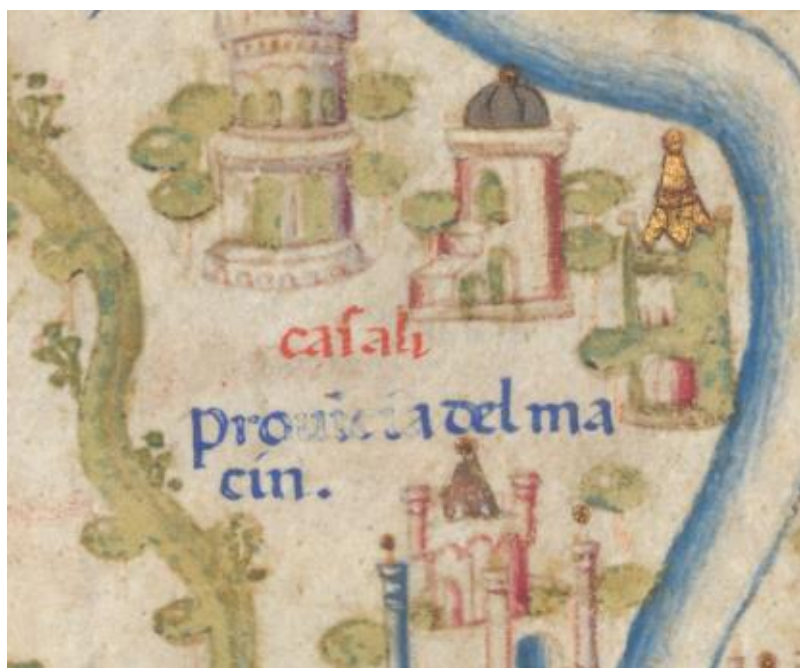 casali
prouicia del ma
cin.